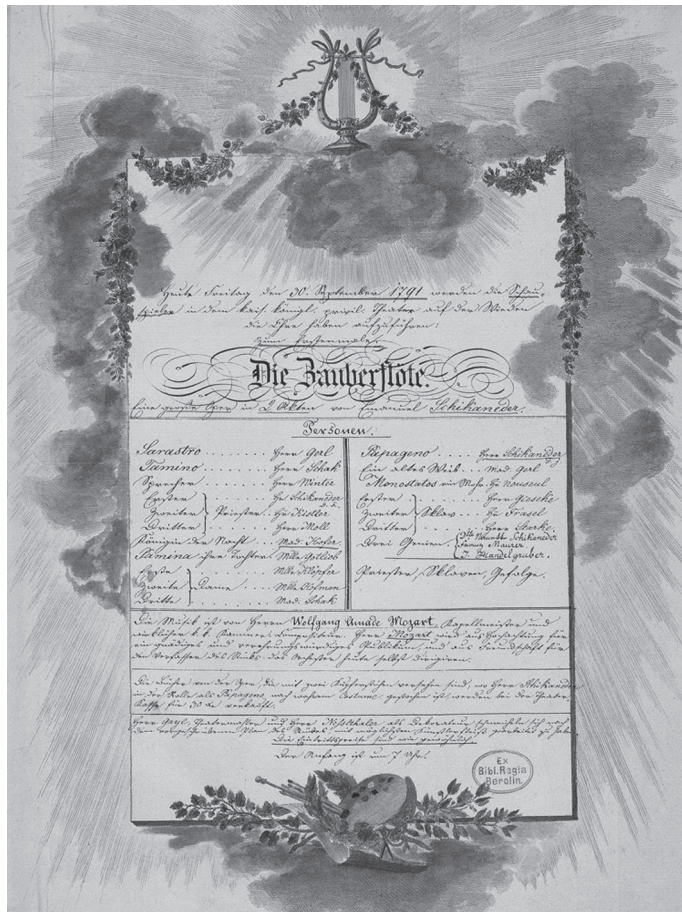 Heute Freitag den 30. September 1791 werden die Schau-
spieler in dem kais. königl. privil. Theater auf der Wieden
die Ehre haben aufzuführen:
zum Erstenmale:
Die Zauberflöte.
Eine große Oper in 2 Akten von Emanuel Schikaneder.
Personen.
Sarastro . . . . . . . . Herr Gerl
Tamino . . . . . . . . Herr Schak
Sprecher . . . . . . . . Herr Winter
Erster . . . . Hr Schikaneder
Zweiter } Priester. Hr Kistler
Dritter . . . . Herr Moll
Königin der Nacht . . Mad. Hofer
Pamina ihre Tochter Mlle Gottlieb
Erste . . . . Mlle Klöpfer
Zweite } Dame . . Mlle Hofman
Dritte . . . . Mad. Schak
Papageno . . . . Herr Schikaneder
Ein altes Weib . . Mad. Gerl
Monostatos ein Mohr. Hr Nouseul
Erster . . . . Herr Gieseke
Zweiter } Sklav . . Hr Frasel
Dritter . . . . Herr Starke
Drei Genien. Schikaneder
Maurer
Handelgruber.
Priester, Sklaven, Gefolge.
Die Musik ist von Herrn Wolfgang Amade Mozart, Kapellmeister und
wirklicher k. k. Kammer-Compositeur. Herr Mozart wird aus Hochachtung für
ein gnädiges und verehrungswürdiges Publikum, und aus Freundschaft für
den Verfasser des Stücks das Orchester heute selbst dirigiren.
Die Bücher von der Oper, die mit zwei Kupferstichen versehen sind, wo Herr Schikaneder
in der Rolle als Papageno nach wahrem Costume gestochen ist, werden bei der Theater
Kassa für 30 verkauft.
Herr Gayl, Theatermaler und Herr Neßthaler als Dekorateur schmeicheln sich nach
dem vorgeschriebenen Plan des Stücks mit möglichstem Künstlerfleiß gearbeitet zu haben
Die Eintrittspreise sind wie gewöhnlich
Der Anfang ist um 7 Uhr.
Ex
Bibl. Regia
Berolin.